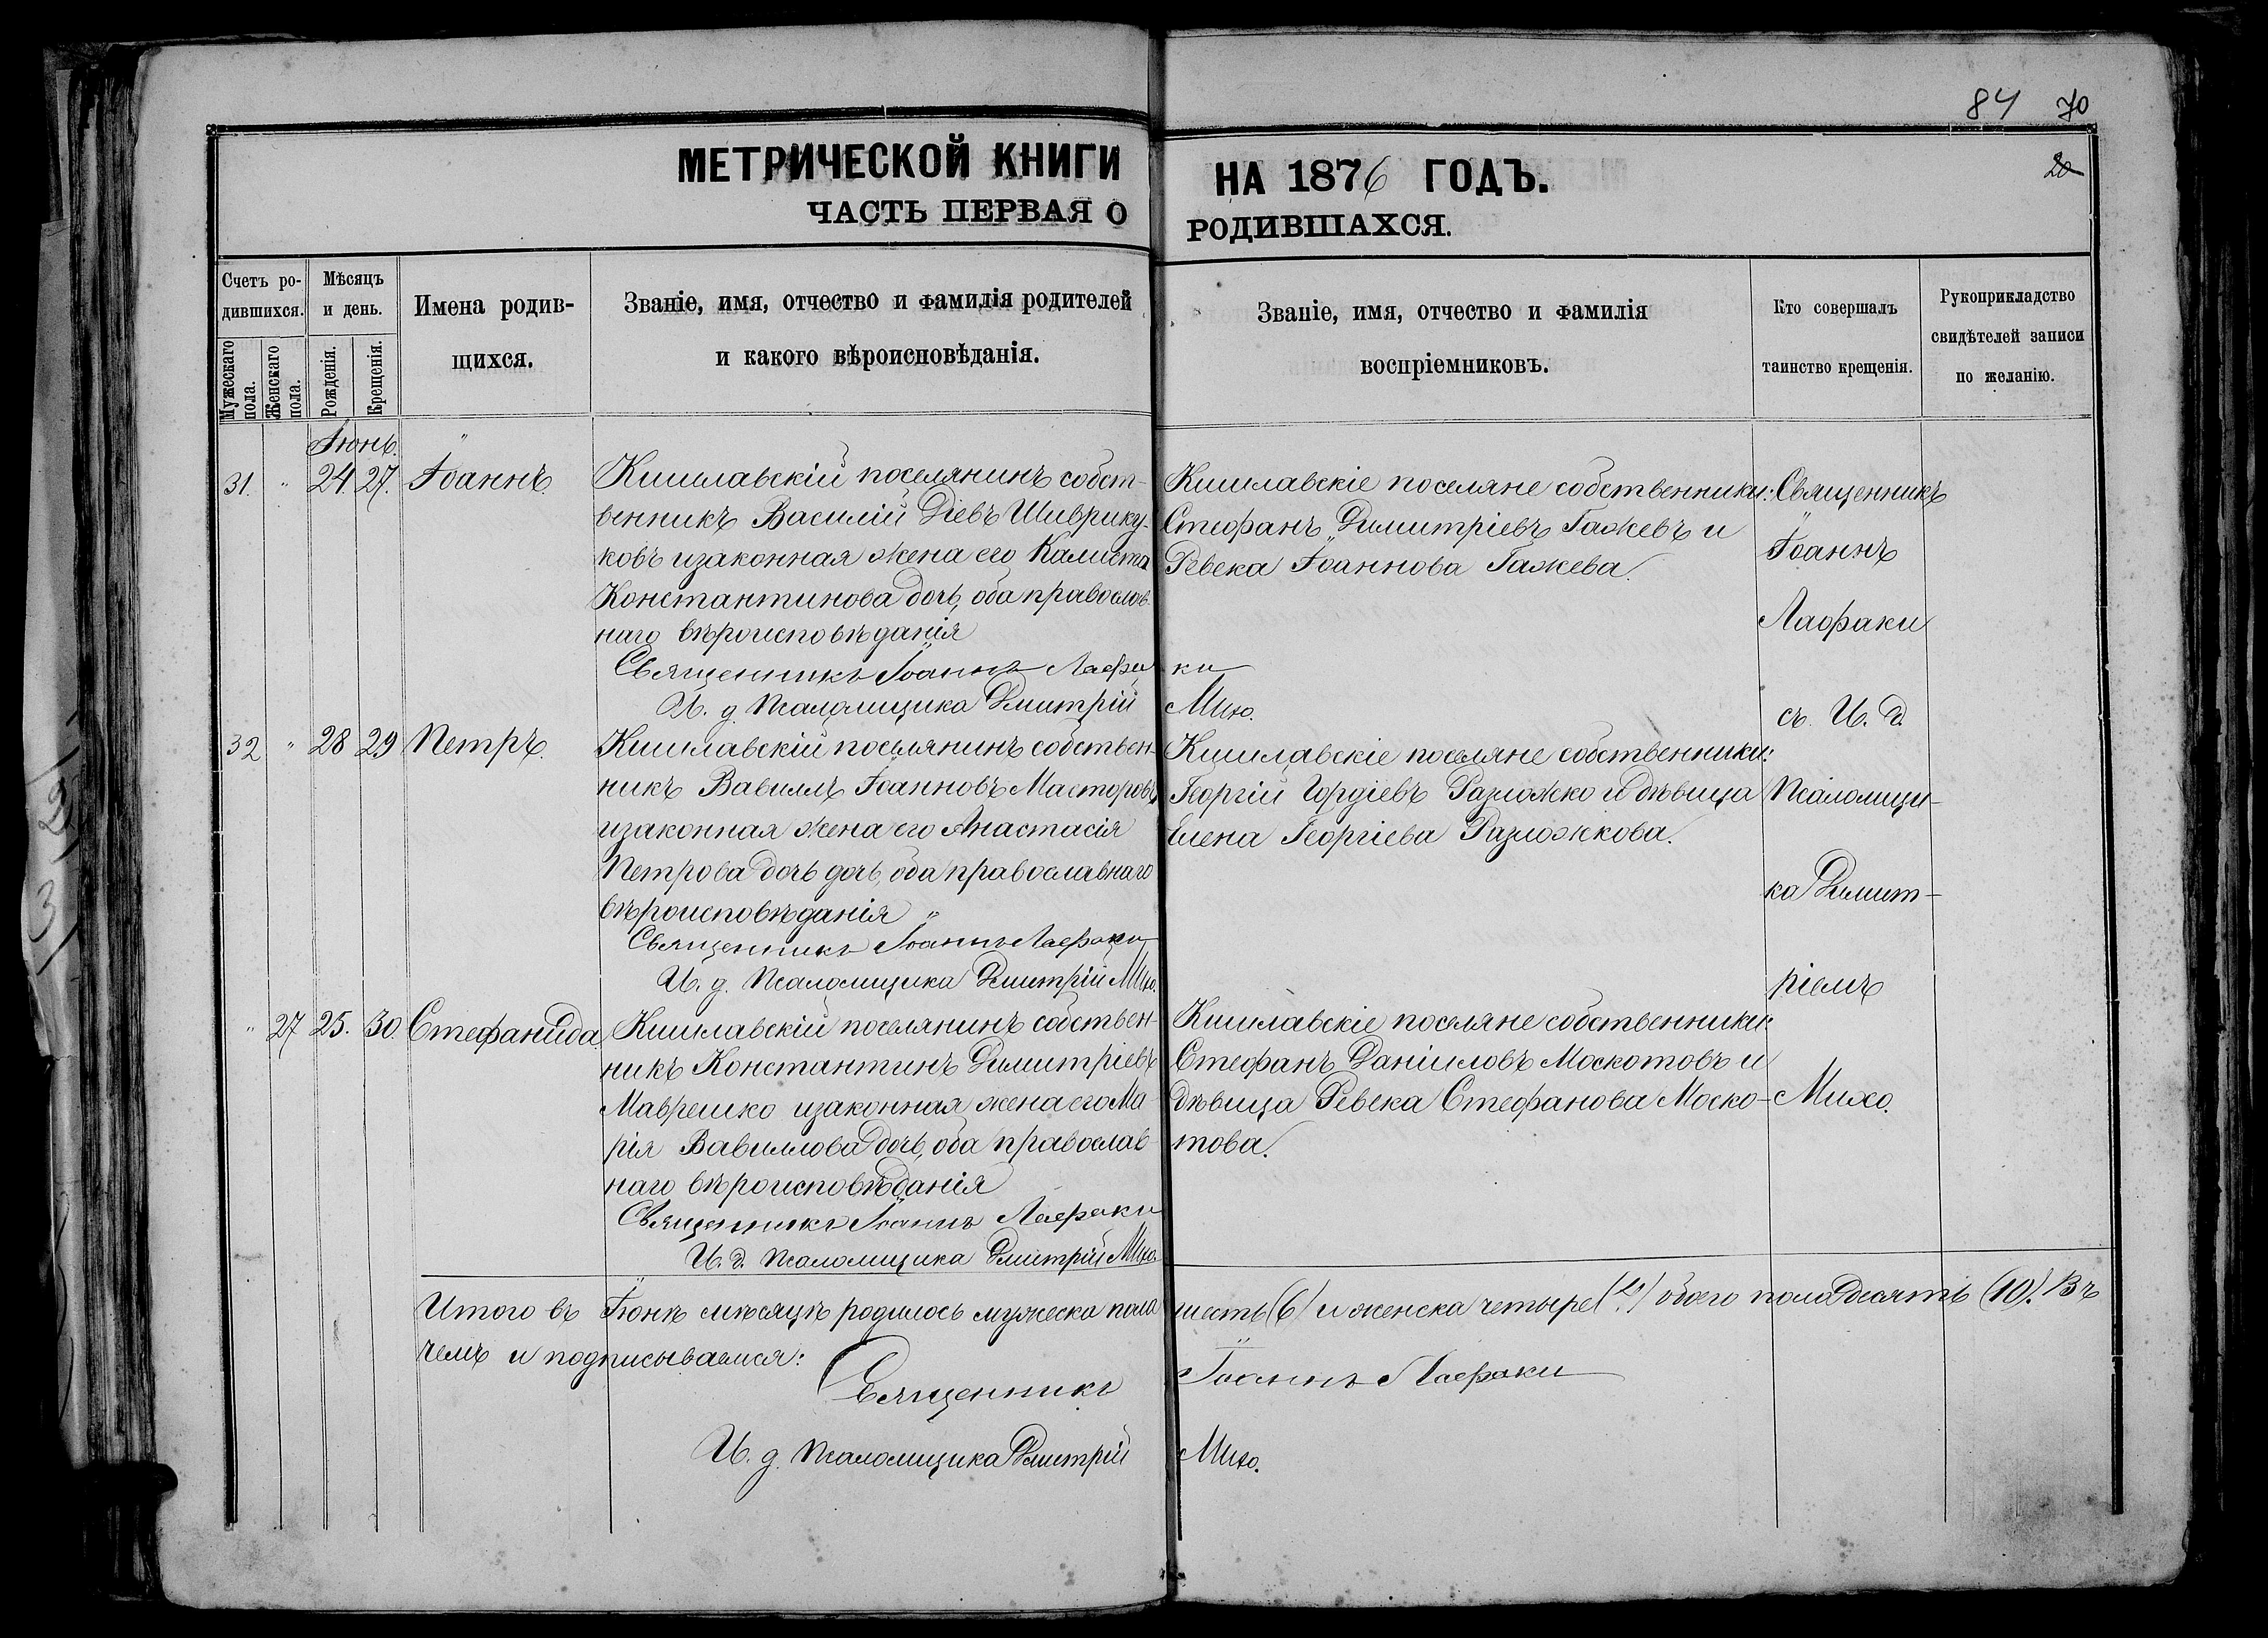 84 70
20
МЕТРИЧЕСКОЙ КНИГИ НА 1876 ГОДЪ.
ЧАСТЬ ПЕРВАЯ О РОДИВШАХСЯ.
Счетъ ро-
дившихся.
Мужескаго
пола.
Женскаго
пола.
Мѣсяцъ
и день.
Рожденія.
Крещенія.
Имена родив-
щихся.
Званіе, имя, отчество и фамилія родителей
и какого вѣроисповѣданія.
Званіе, имя, отчество и фамилія
воспріемниковъ.
Кто совершалъ
таинство крещенія.
Рукоприкладство
свидѣтелей записи
по желанію.
Іюнь.
31. " 24. 27. Іоаннъ.
Кишлавскій поселянинъ собст-
венникъ Василій Діевъ Шиврику-
ковъ изаконная жена его
Константинова дочь, оба православ-
наго вѣроисповѣданія
Священникъ Іоаннъ Лафаки
И. д. Псаломщика Дмитрій Михо.
Кишлавскіе поселяне собственники:
Стефанъ Димитріевъ Гажевъ и
Ревека Іоаннова Гажева.
Священникъ
Іоаннъ
Лафаки
съ И. д.
Псаломщи-
ка Димит-
ріемъ
Михо.
32 " 28 29 Петръ.
Кишлавскій поселянинъ собствен-
никъ Вавилъ Іоанновъ Масторовъ
изаконная жена его Анастасія
Петрова дочь дочь, оба православнаго
вѣроисповѣданія
Священникъ Іоаннъ Лафаки
И. д. Псаломщика Дмитрій Михо.
Кишлавскіе поселяне собственники:
Георгій Гордіевъ Разложко и дѣвица
Елена Георгіева Разложкова.
" 27 25. 30. Стефанида.
Кишлавскій поселянинъ собствен-
никъ Константинъ Димитріевъ
Маврешко изаконная жена его Ма-
рія Вавилова дочь, оба православ-
наго вѣроисповѣданія
Священникъ Іоаннъ Лафаки
И. д. Псаломщика Дмитрій Михо.
Кишлавскіе поселяне собственники:
Стефанъ Даніиловъ Москотовъ и
дѣвица Ревека Стефанова Моско-
това.
Итого въ Іюнѣ мѣсяцѣ родилось мужеска пола шесть (6) и женска четыре (4) обоего пола десять (10). Въ
чемъ и подписываемся:
Священникъ Іоаннъ Лафаки
И. д. Псаломщика Дмитрій Михо.